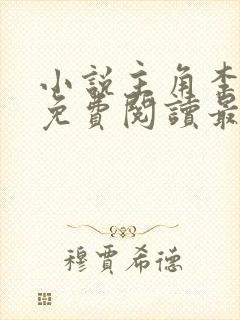 小說主角李
免費閱讀最
穆賈希德